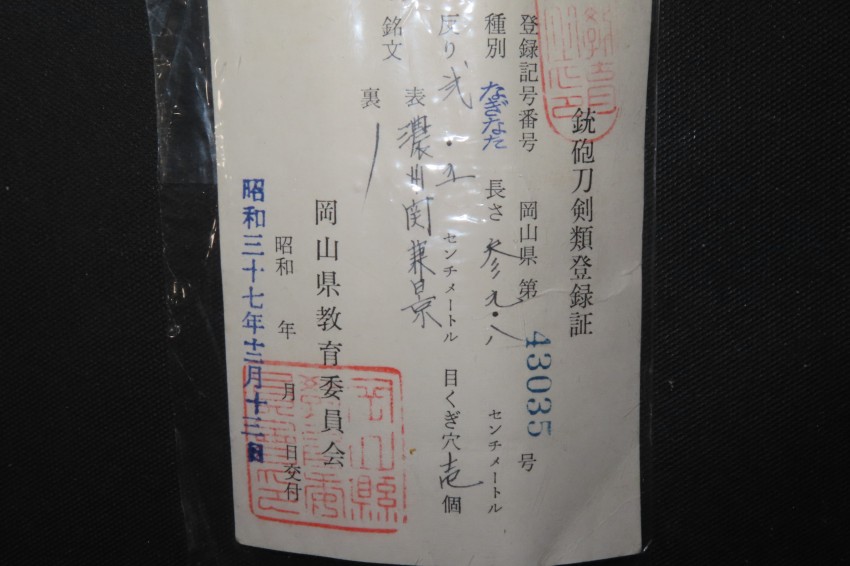 銃砲刀剣類登録証
登録記号番号 岡山県 第 43035 号
種別 なぎなた 長さ 参九・八 センチメートル
反り 弐・五 センチメートル 目くぎ穴 壱 個
銘文 表 濃州関兼景
裏
岡山県教育委員会
昭和 年 月 日交付
昭和三十七年十二月十三日
岡山縣